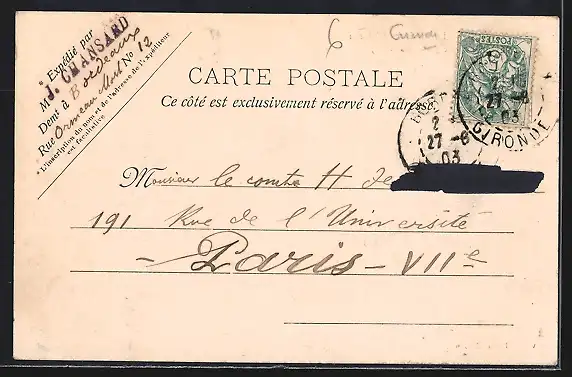 * Expédié par
M J. CHANSARD
Demt à Bordeaux
Rue Ormeau Mort No 12
* L'inscription du nom et de l'adresse de l'expéditeur
est facultative
6
CARTE POSTALE
Ce côté est exclusivement réservé à l'adresse
POSTES
2
27-6
03
GIRONDE
2
27-6
03
Monsieur le comte H de
191 Rue de l'Université
- Paris - VIIe